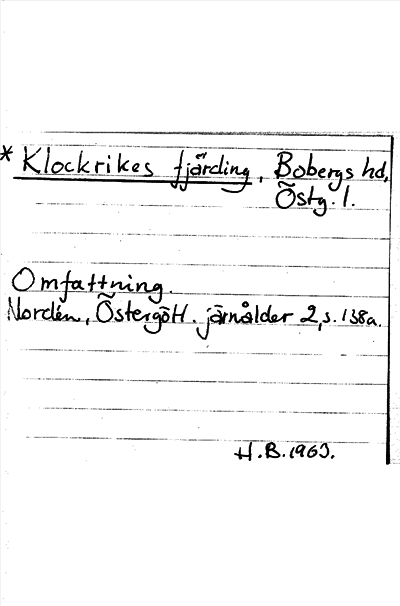 * Klockrikes fjärding, Bobergs hd,
Östg. l.
Omfattning.
Nordén, Östergötl. järnålder 2, s. 138a.
H.B. 1963.